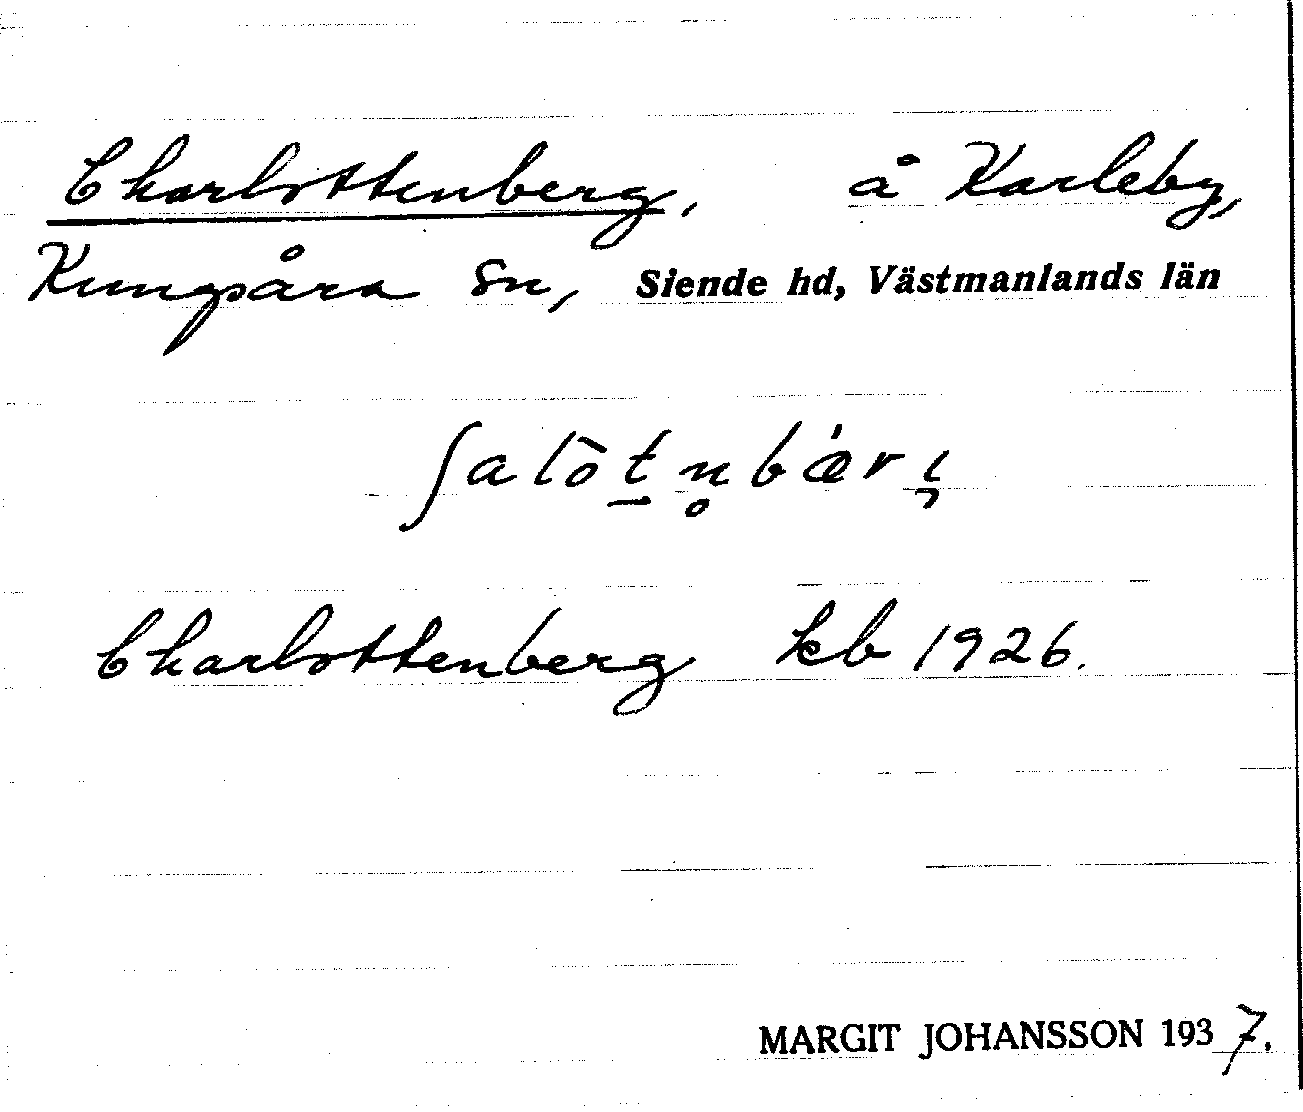 Charlottenberg, å Karleby,
Kungsåra Sn, Siende hd, Västmanlands län
ʃalòt̠n̥bǽrị
Charlottenberg kb 1926.
MARGIT JOHANSSON 1937.